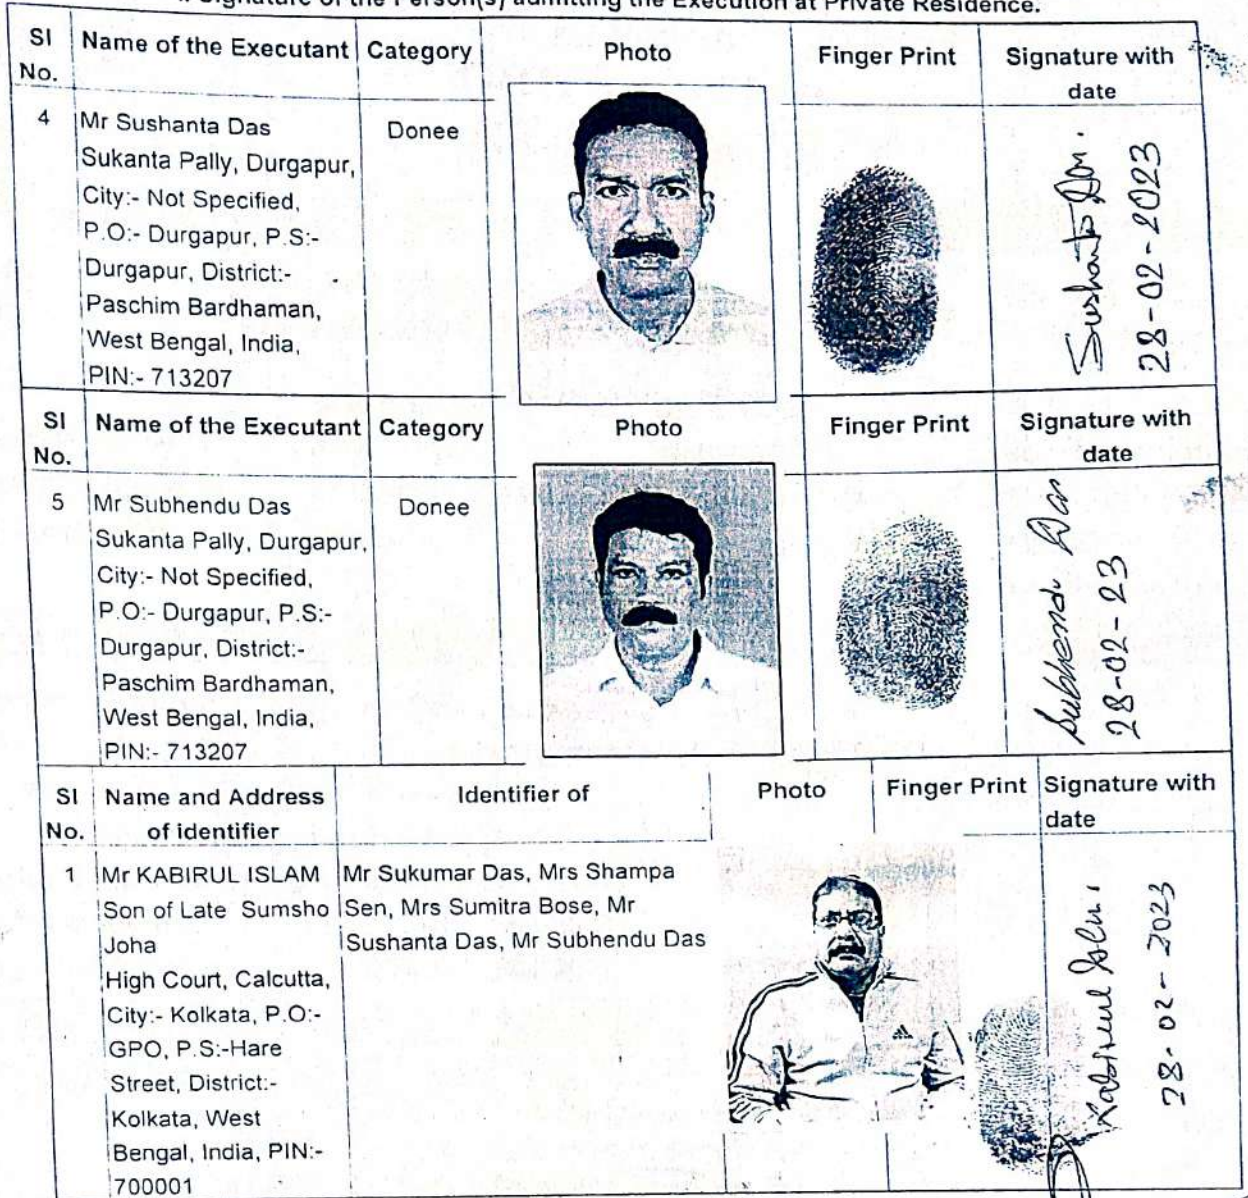 Signature of the Person(s) admitting the Execution at Private Residence.
Sl No. Name of the Executant Category Photo Finger Print Signature with date
4 Mr Sushanta Das Donee
Sukanta Pally, Durgapur,
City:- Not Specified,
P.O:- Durgapur, P.S:-
Durgapur, District:-
Paschim Bardhaman,
West Bengal, India,
PIN:- 713207
Sushanta Das.
28-02-2023
Sl No. Name of the Executant Category Photo Finger Print Signature with date
5 Mr Subhendu Das Donee
Sukanta Pally, Durgapur,
City:- Not Specified,
P.O:- Durgapur, P.S:-
Durgapur, District:-
Paschim Bardhaman,
West Bengal, India,
PIN:- 713207
Subhendu Das
28-02-23
Sl No. Name and Address of identifier Identifier of Photo Finger Print Signature with date
1 Mr KABIRUL ISLAM Mr Sukumar Das, Mrs Shampa
Son of Late Sumsho Sen, Mrs Sumitra Bose, Mr
Joha Sushanta Das, Mr Subhendu Das
High Court, Calcutta,
City:- Kolkata, P.O:-
GPO, P.S:-Hare
Street, District:-
Kolkata, West
Bengal, India, PIN:-
700001
Kabirul Islam
28-02-2023